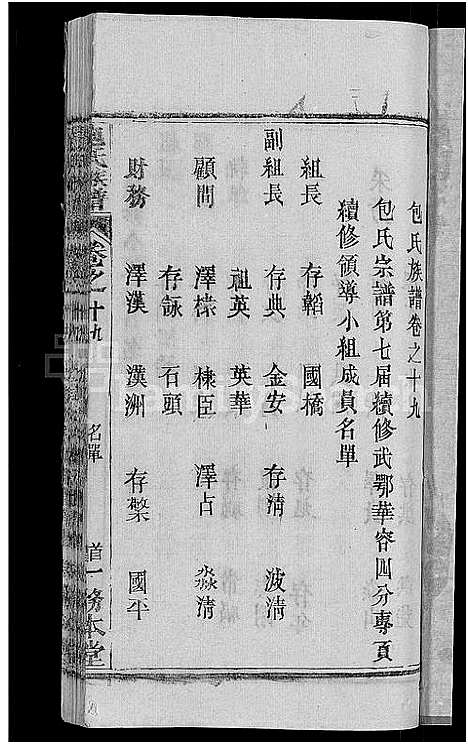 包氏族譜卷之十九
包氏宗譜第七届續修武鄂華容四分專頁
續修領導小組成員名單
組長 存韜 國橋
副組長 存典 金安 存清 波清
祖英 英華
顧問 澤樣 棣臣 澤占 淼清
存詠 石頭
財務 澤漢 漢洲 存檠 國平
包氏族譜 卷之十九 名單 首一 務本堂